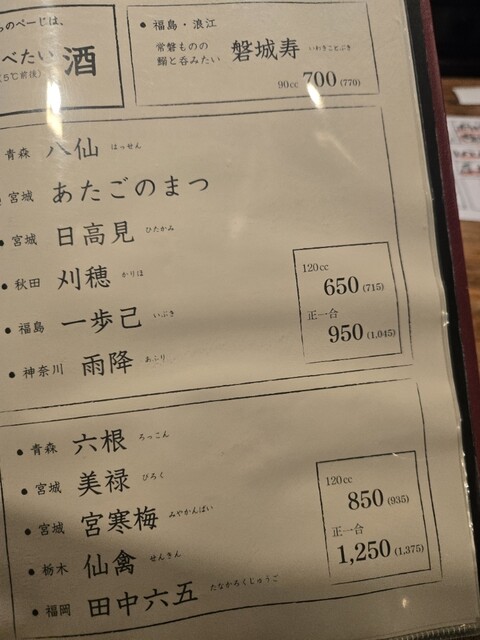 らのぺーじは、
べたい酒
(5℃前後)
● 福島・浪江
常磐ものの
鰯と呑みたい 磐城寿 いわきことぶき
90cc 700 (770)
青森 八仙 はっせん
宮城 あたごのまつ
● 宮城 日高見 ひたかみ
● 秋田 刈穂 かりほ
● 福島 一歩己 いぶき
● 神奈川 雨降 あふり
120cc
650 (715)
正一合
950 (1,045)
● 青森 六根 ろっこん
● 宮城 美禄 びろく
● 宮城 宮寒梅 みやかんばい
● 栃木 仙禽 せんきん
● 福岡 田中六五 たなかろくじゅうご
120cc
850 (935)
正一合
1,250 (1,375)